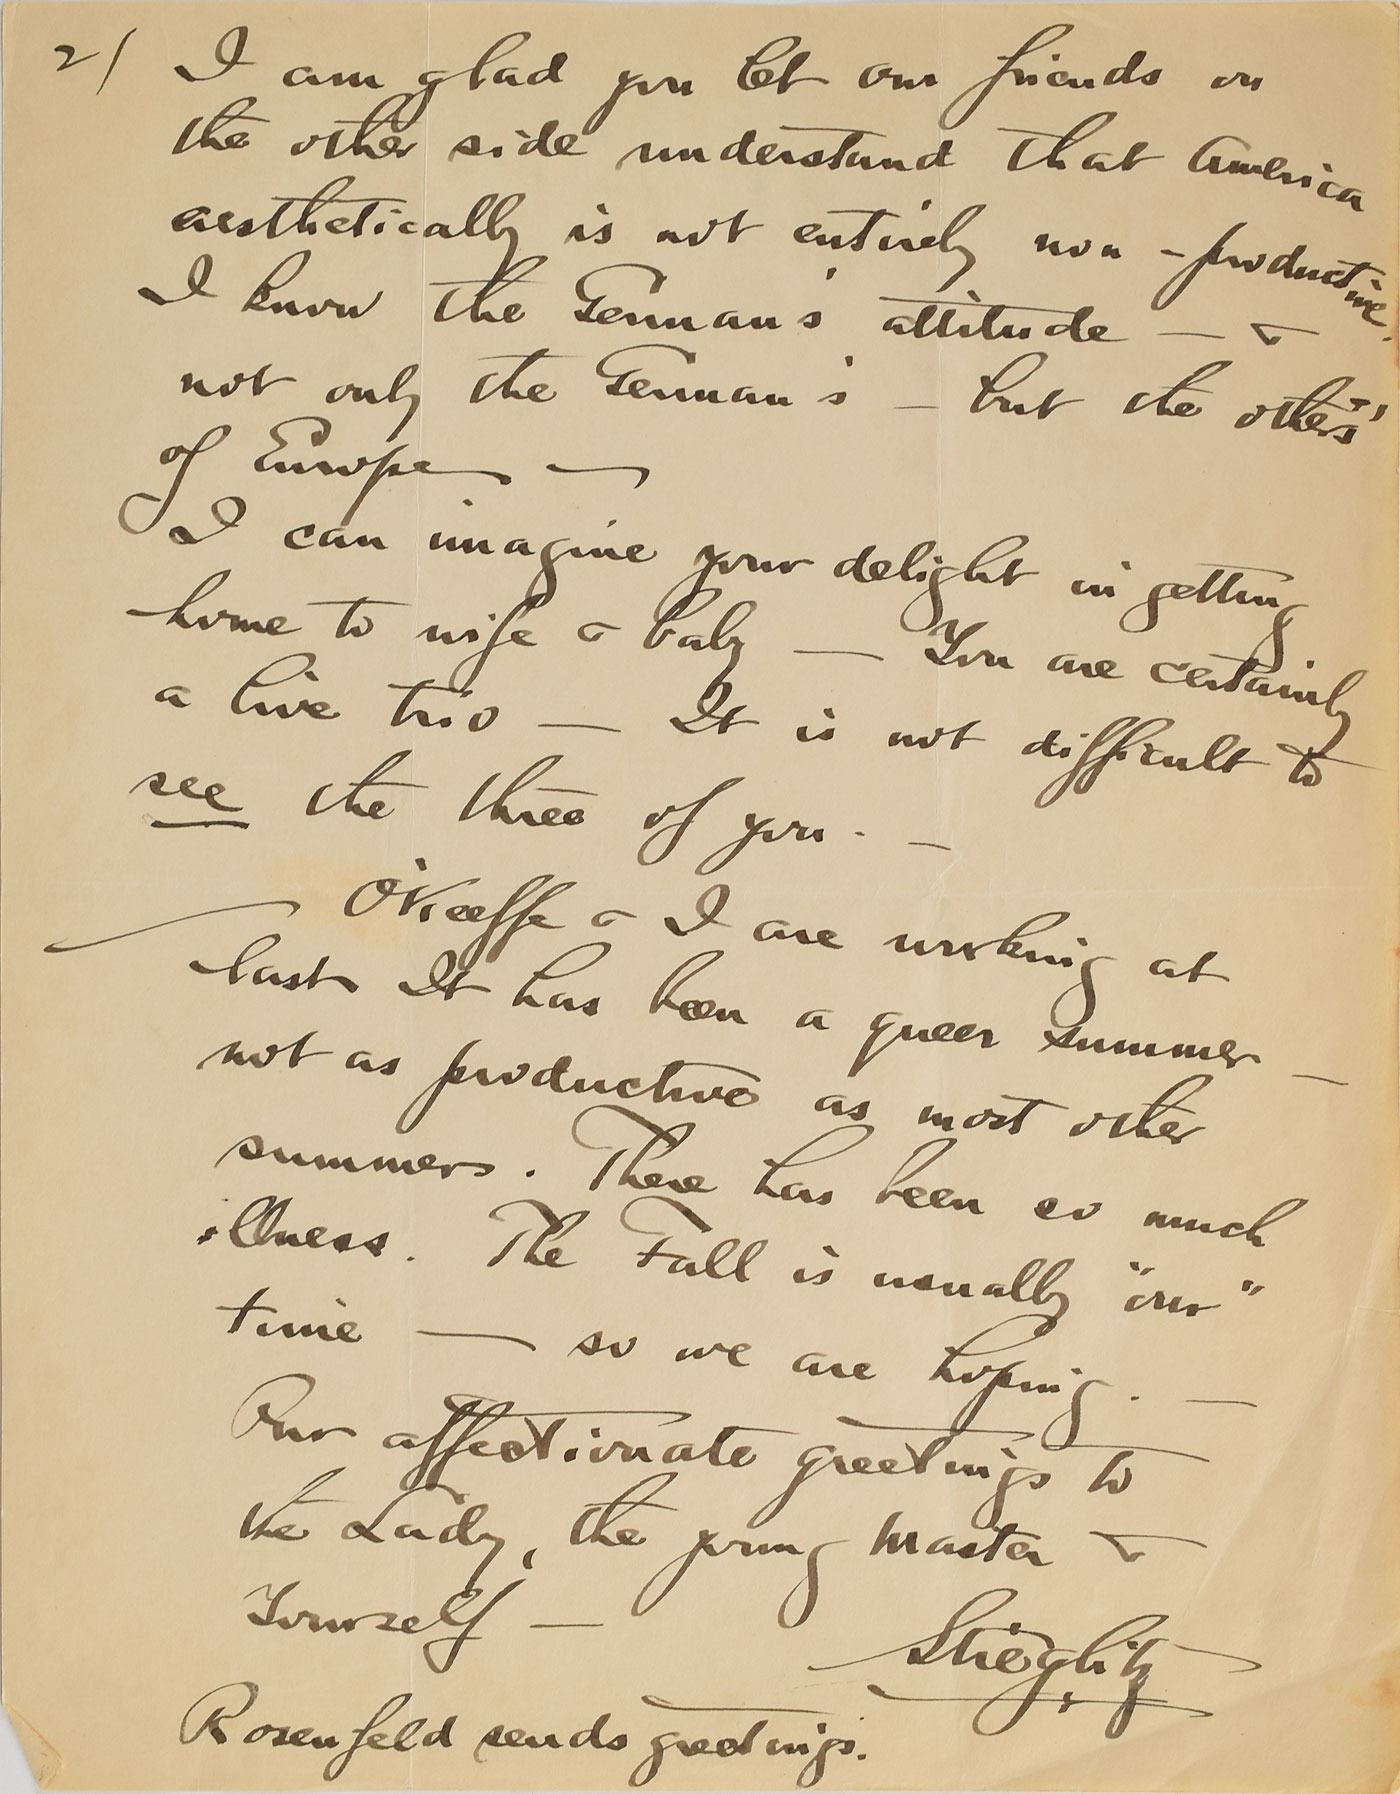 2/ I am glad you let our friends on
the other side understand that America
aesthetically is not entirely non-productive.
I know the German's attitude — &
not only the German's — but the others'
of Europe —
I can imagine your delight in getting
home to wife & baby — You are certainly
a live trio — It is not difficult to
see the three of you. —
O'Keeffe & I are working at
last. It has been a queer summer —
not as productive as most other
summers. There has been so much
illness. The Fall is usually "our"
time — so we are hoping. —
Our affectionate greetings to
the Lady, the young Master &
Yourself —
Stieglitz
Rosenfeld sends greetings.